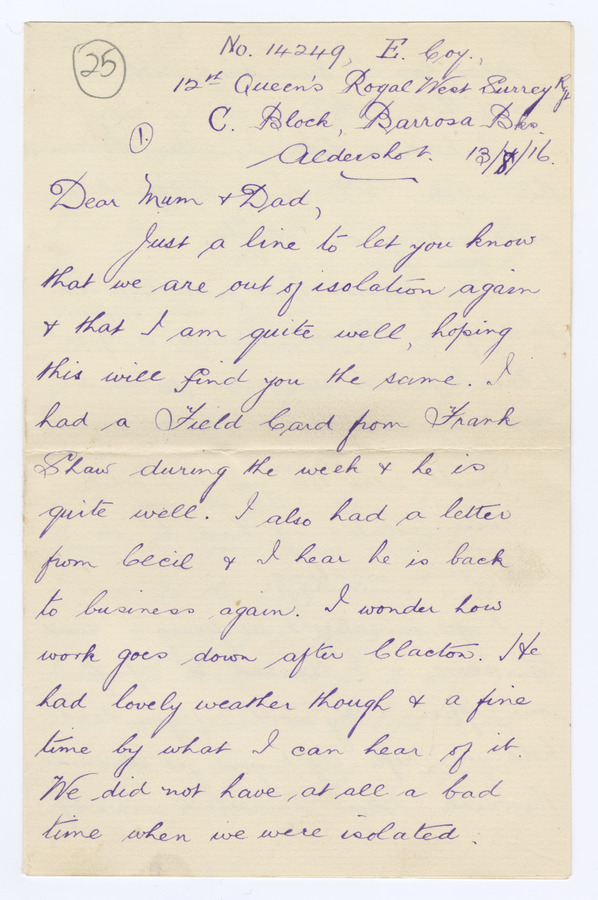 25
No. 14249, E. Coy.,
12th Queen's Royal West Surrey Rgt
C. Block, Barrosa Bks.
1.
Aldershot. 13/8/16.
Dear Mum & Dad,
Just a line to let you know
that we are out of isolation again
& that I am quite well, hoping
this will find you the same. I
had a Field Card from Frank
Shaw during the week & he is
quite well. I also had a letter
from Cecil & I hear he is back
to business again. I wonder how
work goes down after Clacton. He
had lovely weather though & a fine
time by what I can hear of it.
We did not have at all a bad
time when we were isolated.